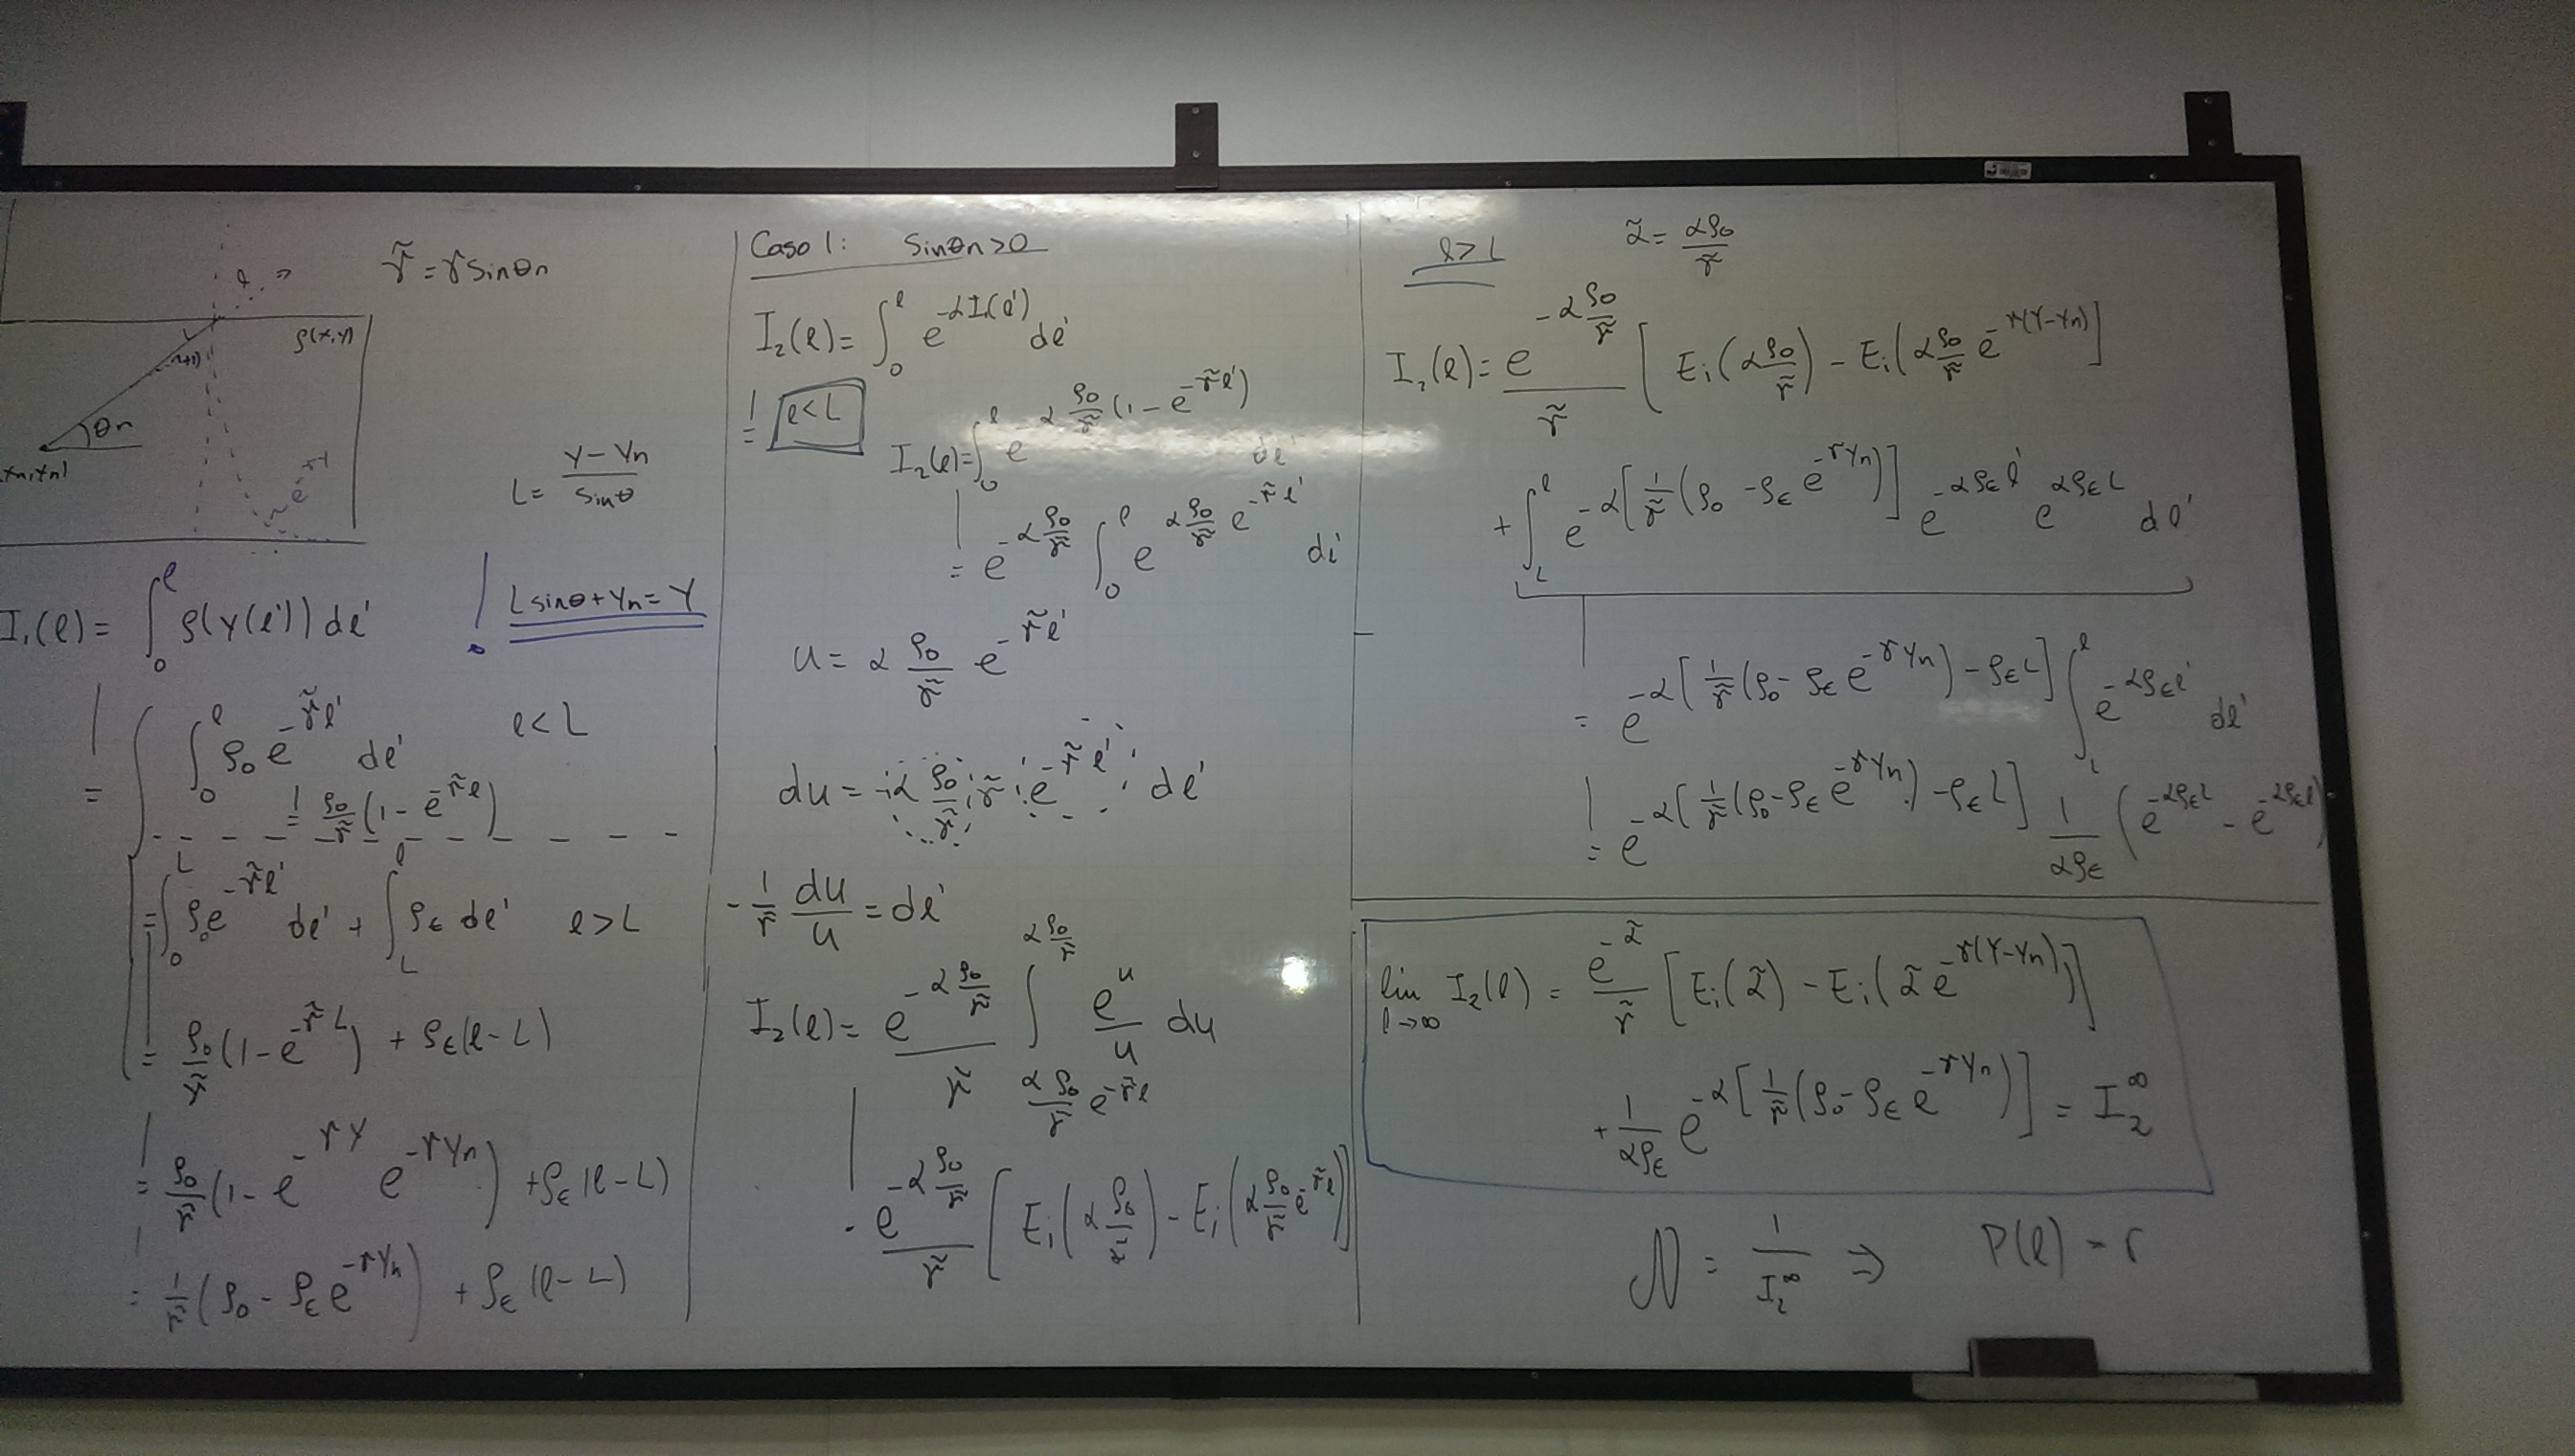 γ̃ = γ sinθn
ρ(x,y)
L
(n+1)
θn
xn,yn)
e^-γY
L = (Y - Yn)/sinθ
L sinθ + Yn = Y
I₁(ℓ) = ∫₀^ℓ ρ(Y(ℓ')) dℓ'
= { ∫₀^ℓ ρ₀ e^(-γ̃ℓ') dℓ'   ℓ < L
= ρ₀/γ̃ (1 - e^(-γ̃ℓ))
= ∫₀^L ρ₀ e^(-γ̃ℓ') dℓ' + ∫_L^ℓ ρ_ϵ dℓ'   ℓ > L
= ρ₀/γ̃ (1 - e^(-γ̃L)) + ρ_ϵ(ℓ - L)
= ρ₀/γ̃ (1 - e^(-γY) e^(-γYn)) + ρ_ϵ(ℓ - L)
= 1/γ̃ (ρ₀ - ρ_ϵ e^(-γYn)) + ρ_ϵ (ℓ - L)
Caso 1: sinθn > 0
I₂(ℓ) = ∫₀^ℓ e^(-αI₁(ℓ')) dℓ'
= ℓ < L
I₂(ℓ) = ∫₀^ℓ e^(-α ρ₀/γ̃ (1 - e^(-γ̃ℓ'))) dℓ'
= e^(-α ρ₀/γ̃) ∫₀^ℓ e^(α ρ₀/γ̃ e^(-γ̃ℓ')) dℓ'
u = α ρ₀/γ̃ e^(-γ̃ℓ')
du = -α ρ₀/γ̃ γ̃ e^(-γ̃ℓ') dℓ'
-1/γ̃ du/u = dℓ'
I₂(ℓ) = e^(-α ρ₀/γ̃)/γ̃ ∫_(α ρ₀/γ̃ e^(-γ̃ℓ))^(α ρ₀/γ̃) e^u/u du
= e^(-α ρ₀/γ̃)/γ̃ [Ei(α ρ₀/γ̃) - Ei(α ρ₀/γ̃ e^(-γ̃ℓ))]
ℓ > L   α̃ = αρ₀/γ̃
I₂(ℓ) = e^(-α ρ₀/γ̃)/γ̃ [Ei(α ρ₀/γ̃) - Ei(α ρ₀/γ̃ e^(-γ(Y-Yn))]
+ ∫_L^ℓ e^(-α[1/γ̃ (ρ₀ - ρ_ϵ e^(-γYn))]) e^(-αρ_ϵℓ') e^(αρ_ϵL) dℓ'
= e^(-α[1/γ̃ (ρ₀ - ρ_ϵ e^(-γYn)) - ρ_ϵL]) ∫_L^ℓ e^(-αρ_ϵℓ') dℓ'
= e^(-α[1/γ̃ (ρ₀ - ρ_ϵ e^(-γYn)) - ρ_ϵL]) 1/(αρ_ϵ) (e^(-αρ_ϵL) - e^(-αρ_ϵℓ))
lim ℓ→∞ I₂(ℓ) = e^(-α̃)/γ̃ [Ei(α̃) - Ei(α̃ e^(-γ(Y-Yn)))]
+ 1/(αρ_ϵ) e^(-α[1/γ̃ (ρ₀ - ρ_ϵ e^(-γYn))]) = I₂^∞
𝒩 = 1/I₂^∞ ⇒ P(ℓ) =